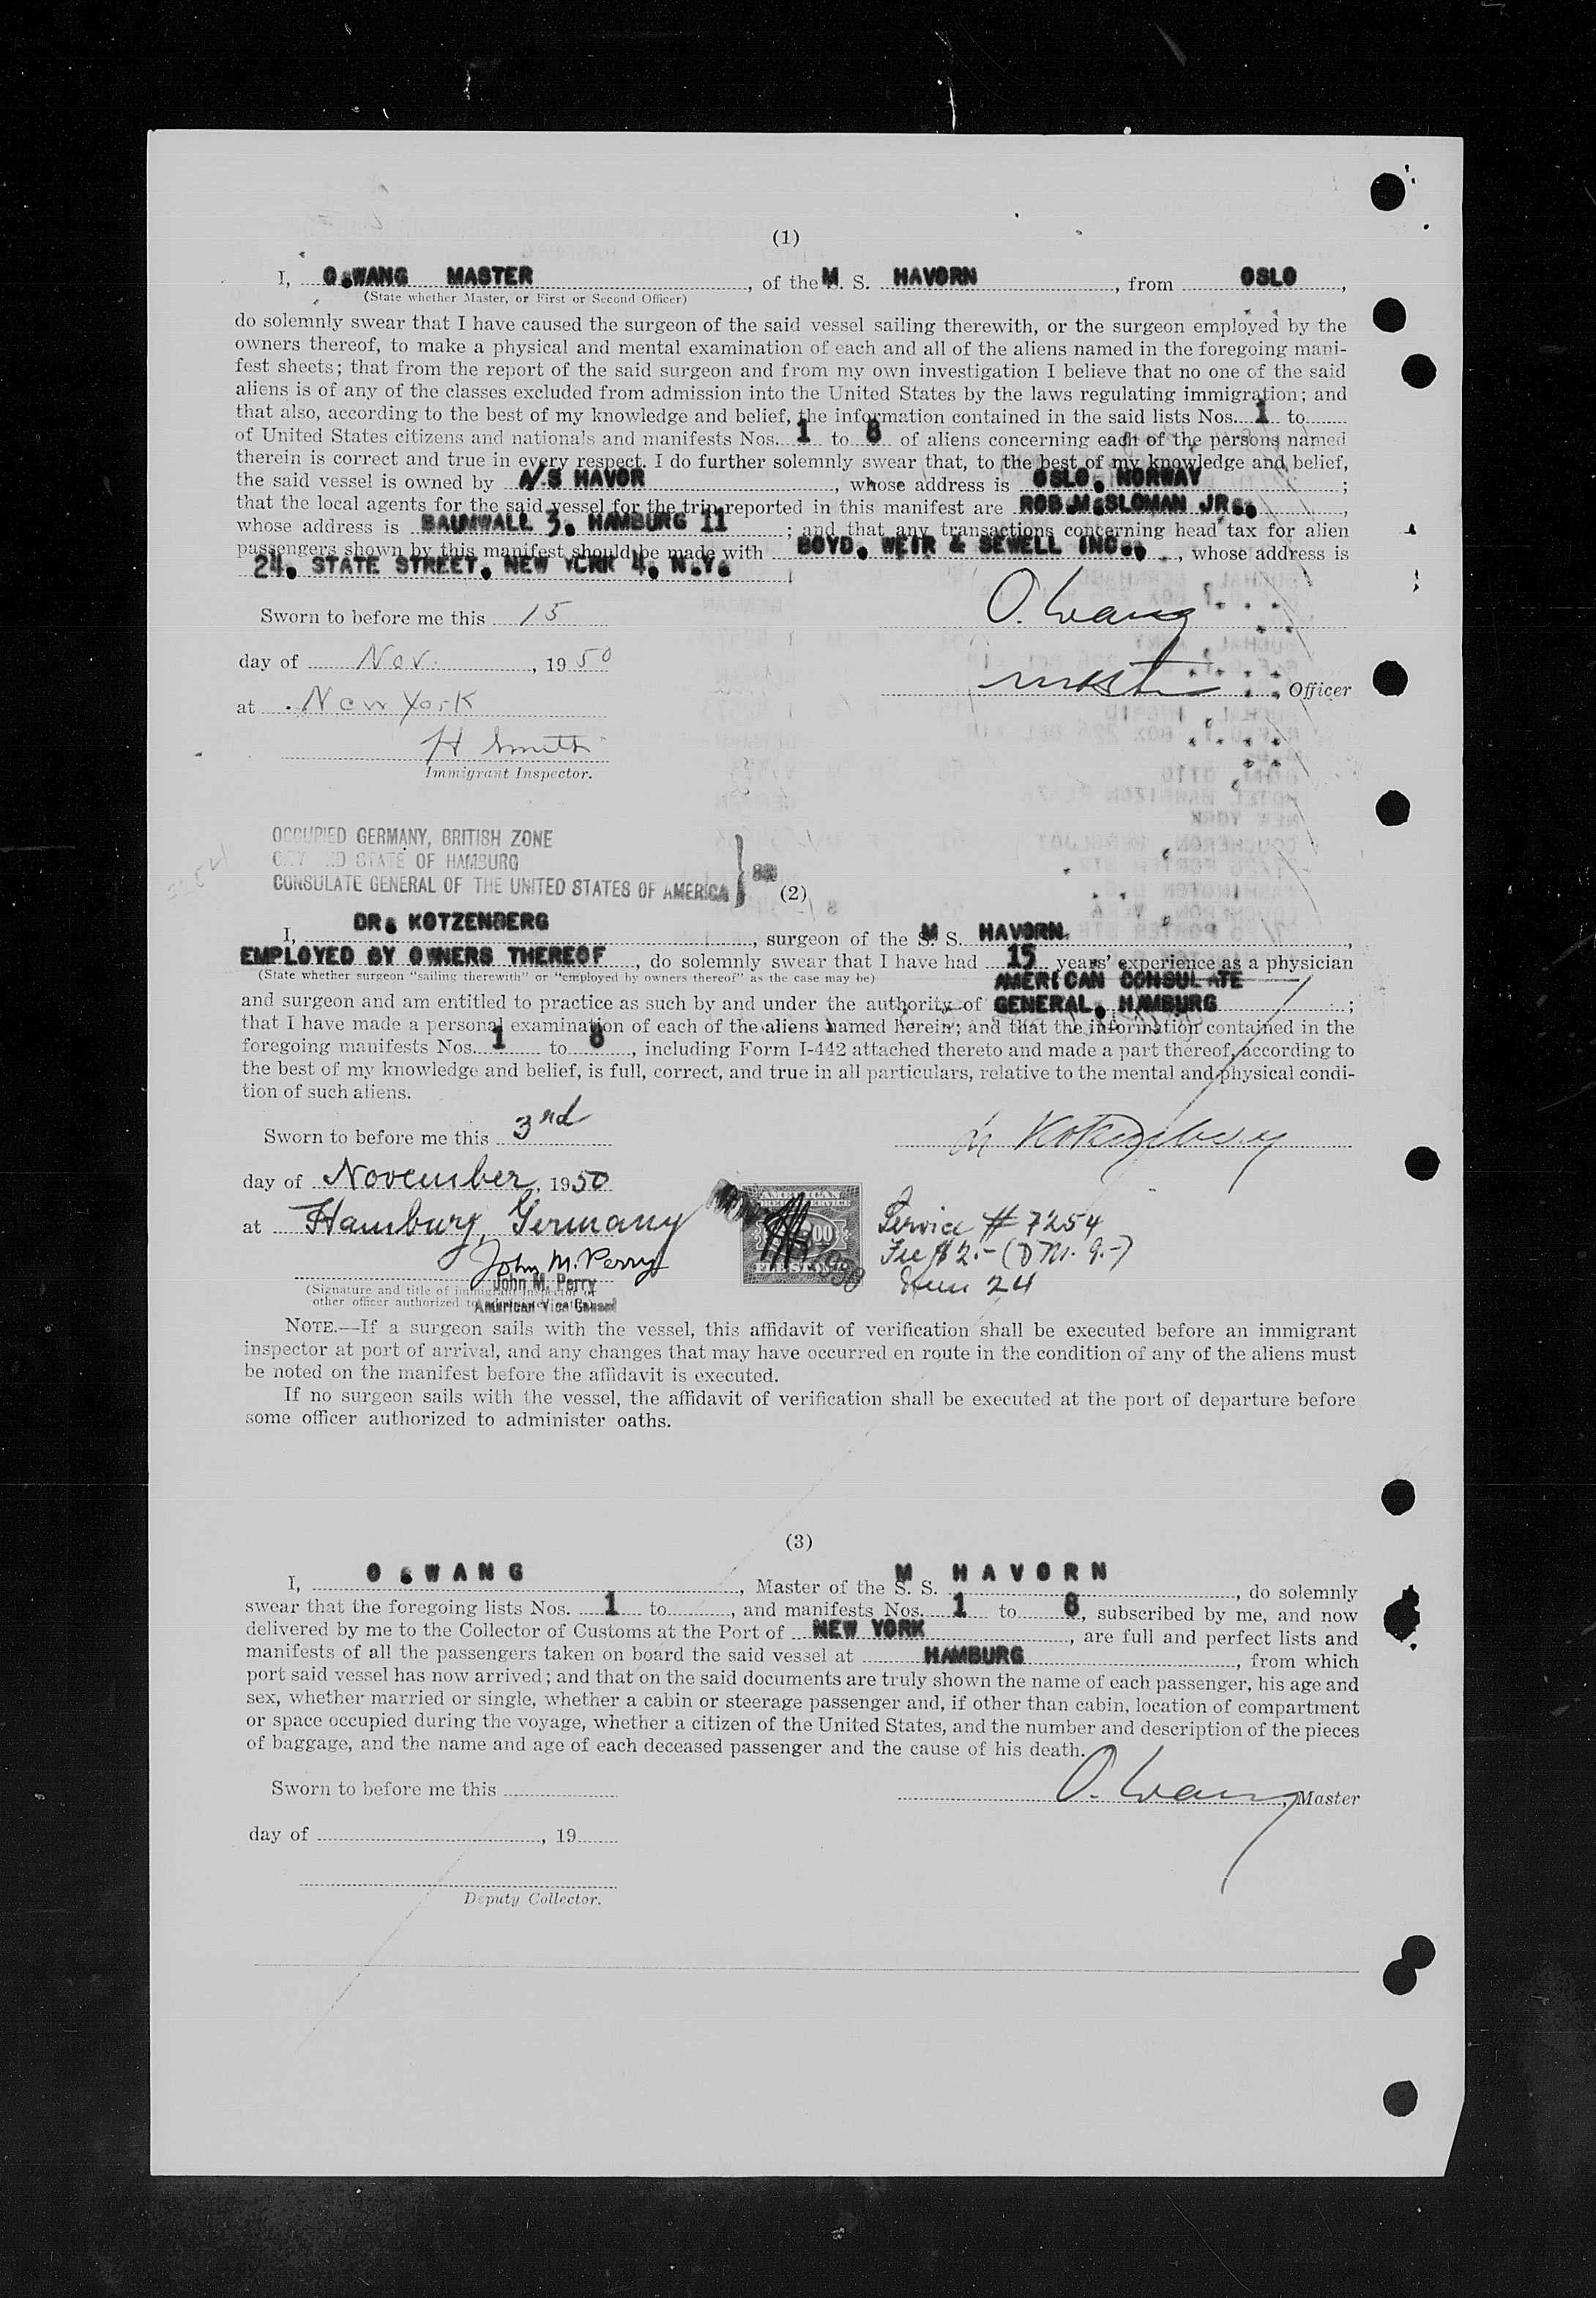 (1)
I, O.WANG MASTER, of the M. S. HAVORN, from OSLO,
(State whether Master, or First or Second Officer)
do solemnly swear that I have caused the surgeon of the said vessel sailing therewith, or the surgeon employed by the
owners thereof, to make a physical and mental examination of each and all of the aliens named in the foregoing mani-
fest sheets; that from the report of the said surgeon and from my own investigation I believe that no one of the said
aliens is of any of the classes excluded from admission into the United States by the laws regulating immigration; and
that also, according to the best of my knowledge and belief, the information contained in the said lists Nos. 1 to
of United States citizens and nationals and manifests Nos. 1 to 8 of aliens concerning each of the persons named
therein is correct and true in every respect. I do further solemnly swear that, to the best of my knowledge and belief,
the said vessel is owned by A/S HAVOR, whose address is OSLO, NORWAY;
that the local agents for the said vessel for the trip reported in this manifest are ROB.M.SLOMAN JR.,
whose address is BAUMWALL 3, HAMBURG 11; and that any transactions concerning head tax for alien
passengers shown by this manifest should be made with BOYD, WEIR & SEWELL INC., whose address is
24, STATE STREET, NEW YORK 4, N.Y.
Sworn to before me this 15
O. Wang
day of Nov., 1950
Master, Officer
at New York
H Smith
Immigrant Inspector.
OCCUPIED GERMANY, BRITISH ZONE
CITY AND STATE OF HAMBURG
CONSULATE GENERAL OF THE UNITED STATES OF AMERICA
(2)
I, DR. KOTZENBERG, surgeon of the M S. HAVORN,
EMPLOYED BY OWNERS THEREOF, do solemnly swear that I have had 15 years' experience as a physician
(State whether surgeon "sailing therewith" or "employed by owners thereof" as the case may be)
AMERICAN CONSULATE
and surgeon and am entitled to practice as such by and under the authority of GENERAL, HAMBURG;
that I have made a personal examination of each of the aliens named herein; and that the information contained in the
foregoing manifests Nos. 1 to 8, including Form I-442 attached thereto and made a part thereof, according to
the best of my knowledge and belief, is full, correct, and true in all particulars, relative to the mental and physical condi-
tion of such aliens.
Sworn to before me this 3rd
Dr Kotzenberg
day of November, 1950
at Hamburg, Germany
AMERICAN
FOREIGN SERVICE
FEE STAMP
Service # 7254
Fee $ 2.- (DM. 9.-)
Item 24
John M. Perry
John M. Perry
(Signature and title of immigrant inspector or
other officer authorized to
American Vice Consul
NOTE.—If a surgeon sails with the vessel, this affidavit of verification shall be executed before an immigrant
inspector at port of arrival, and any changes that may have occurred en route in the condition of any of the aliens must
be noted on the manifest before the affidavit is executed.
If no surgeon sails with the vessel, the affidavit of verification shall be executed at the port of departure before
some officer authorized to administer oaths.
(3)
I, O.WANG, Master of the M S. HAVORN, do solemnly
swear that the foregoing lists Nos. 1 to, and manifests Nos. 1 to 8, subscribed by me, and now
delivered by me to the Collector of Customs at the Port of NEW YORK, are full and perfect lists and
manifests of all the passengers taken on board the said vessel at HAMBURG, from which
port said vessel has now arrived; and that on the said documents are truly shown the name of each passenger, his age and
sex, whether married or single, whether a cabin or steerage passenger and, if other than cabin, location of compartment
or space occupied during the voyage, whether a citizen of the United States, and the number and description of the pieces
of baggage, and the name and age of each deceased passenger and the cause of his death.
Sworn to before me this
O. Wang, Master
day of, 19
Deputy Collector.